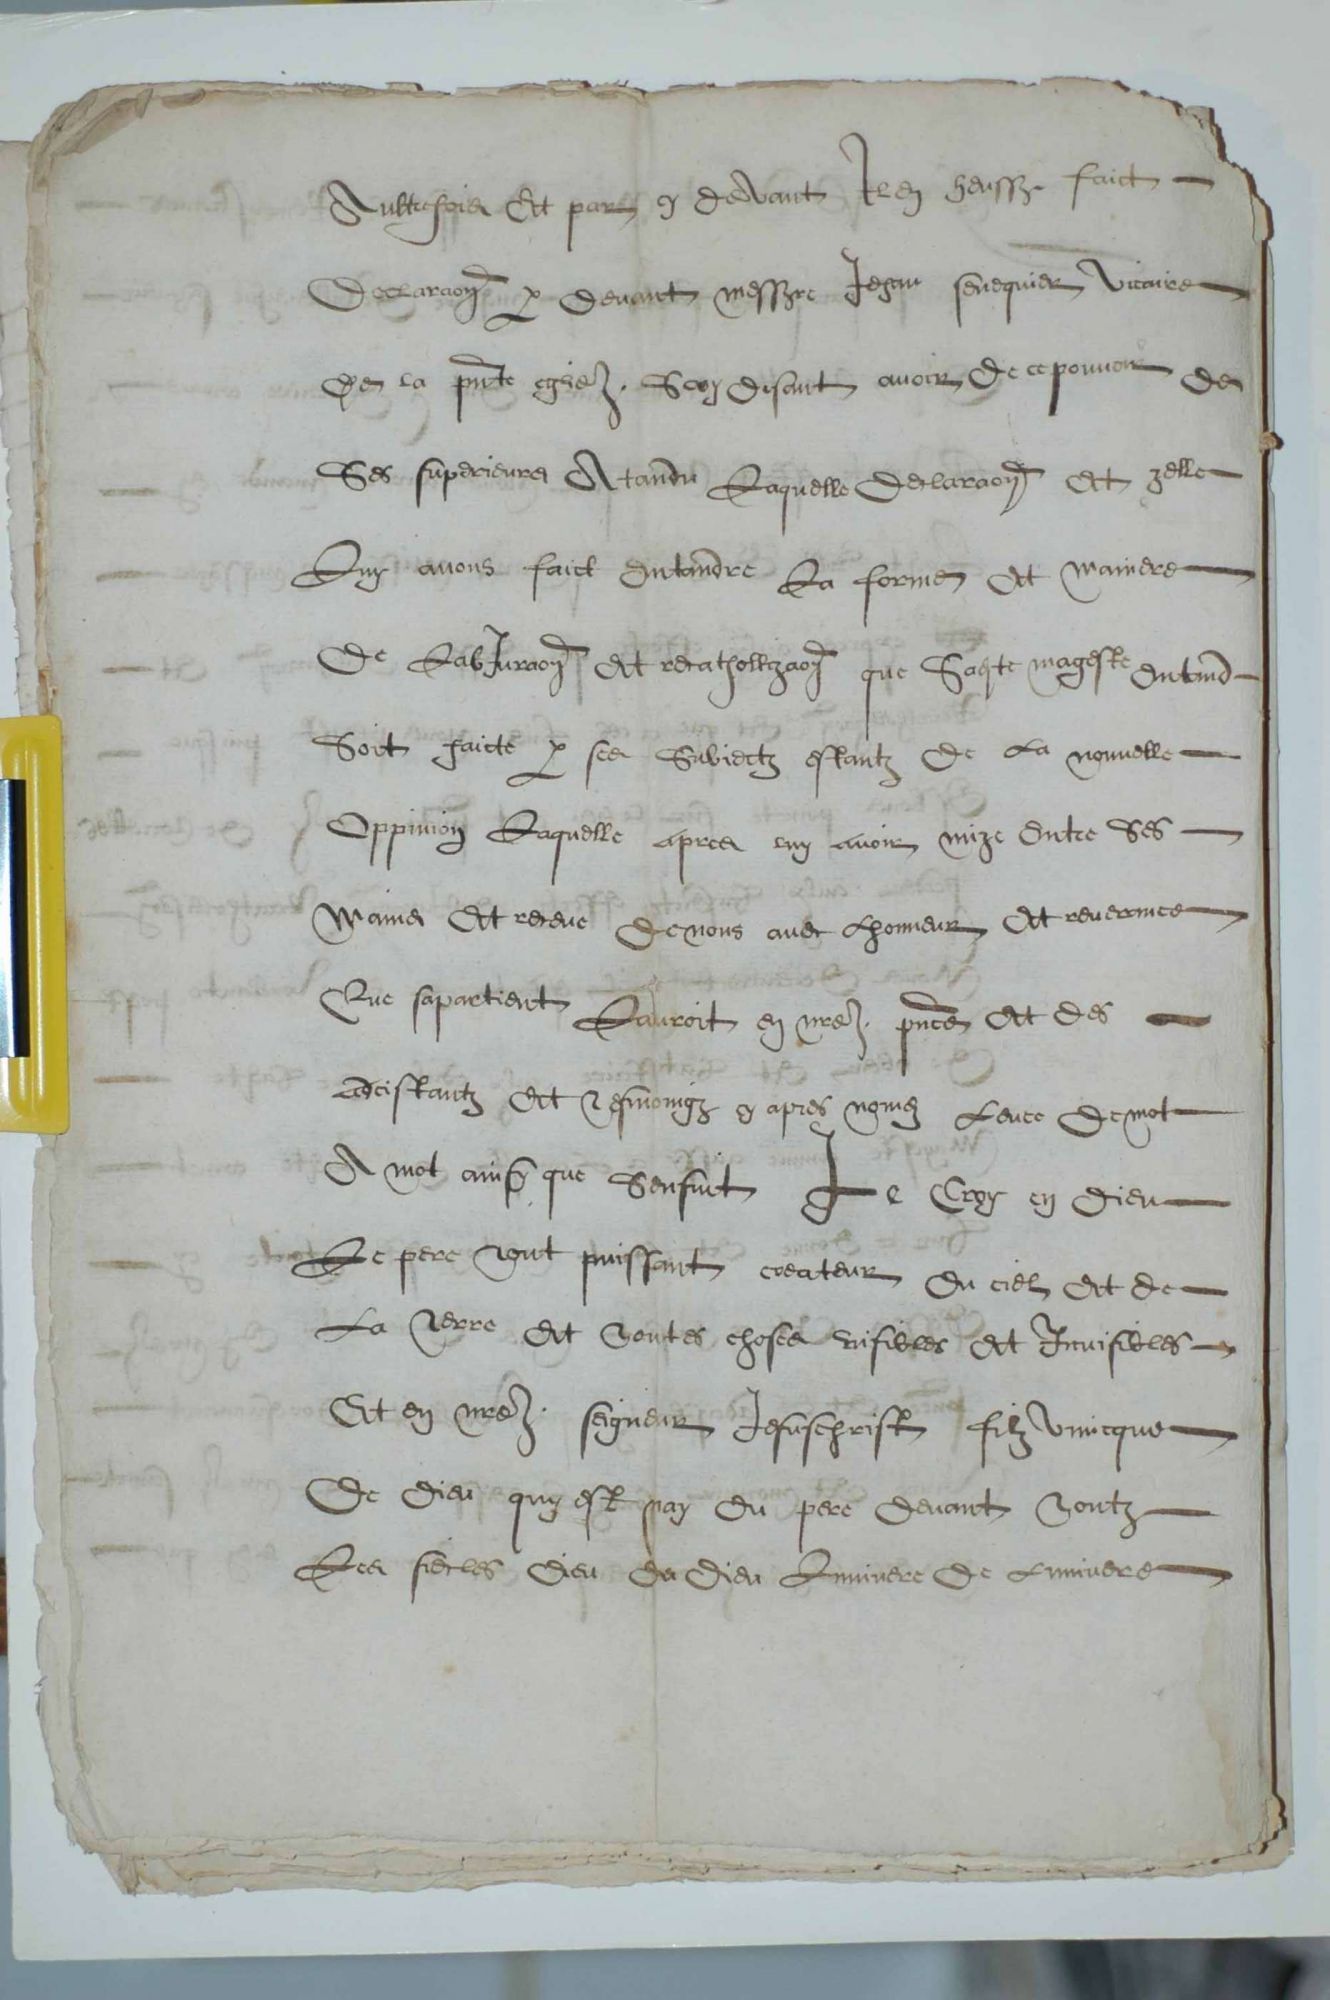 Aultresfois Et par cy devant Il en heussr faict
Declaraon p devant messre Jehan senequier vicaire
De la pnte eglie. Soy disant avoir de ce pouvoir de
Ses superieurs Atandu Laquelle Declaraon Et zelle
Luy avons faict Entandre La forme Et maniere
De LabJuraon Et recatholizaon que Sa mageste Entand
Soit faicte p ses Subiectz estantz De La nouvelle
Oppinion Laquelle apres luy avoir mize Entre Ses
mains Et receue De nous avec Lhonneur Et reverence
Que sapartient Lauroit en nre. pnce Et des
adcistantz Et Tesmoingz cy apres nomes Leue De mot
A mot ainsy que Sensuit Je Croy en Dieu
Le pere Tout puissant createur Du ciel Et de
La Terre Et Toutes choses visibles Et Invisibles
Et en nre. seigneur Jesuschrist filz Unicque
De Dieu quy est nay Du pere Devant Toutz
Les siecles Dieu De Dieu Lumiere De Lumiere